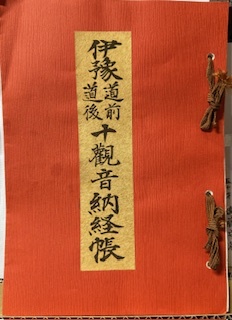 伊豫道前道後十觀音納経帳